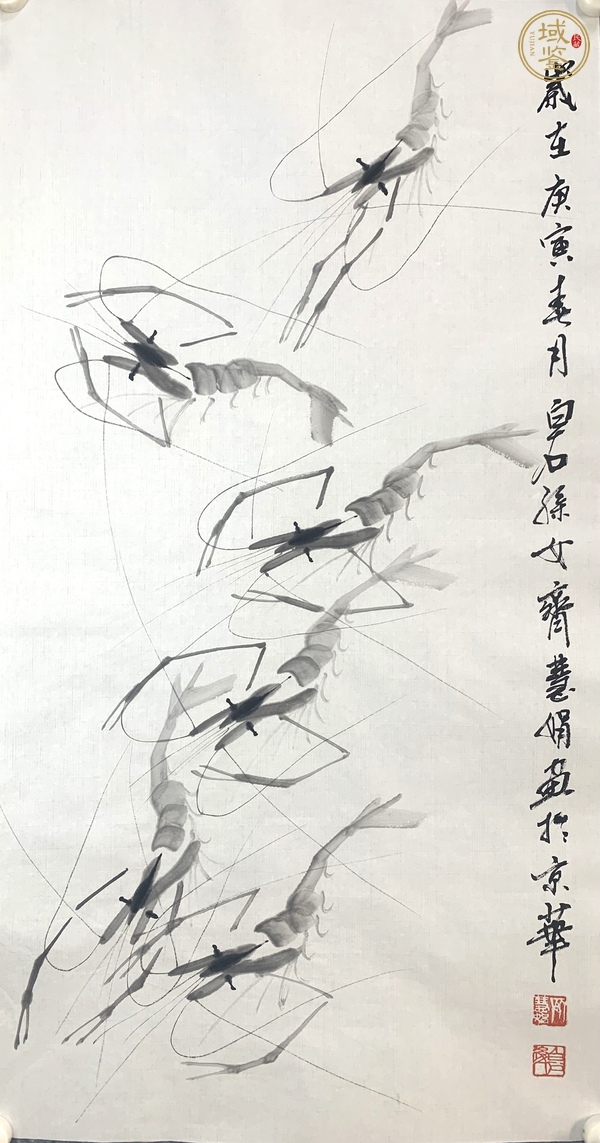 歲在庚寅春月白石孫女齊慧娟畫於京華
域鉴
YUJIAN